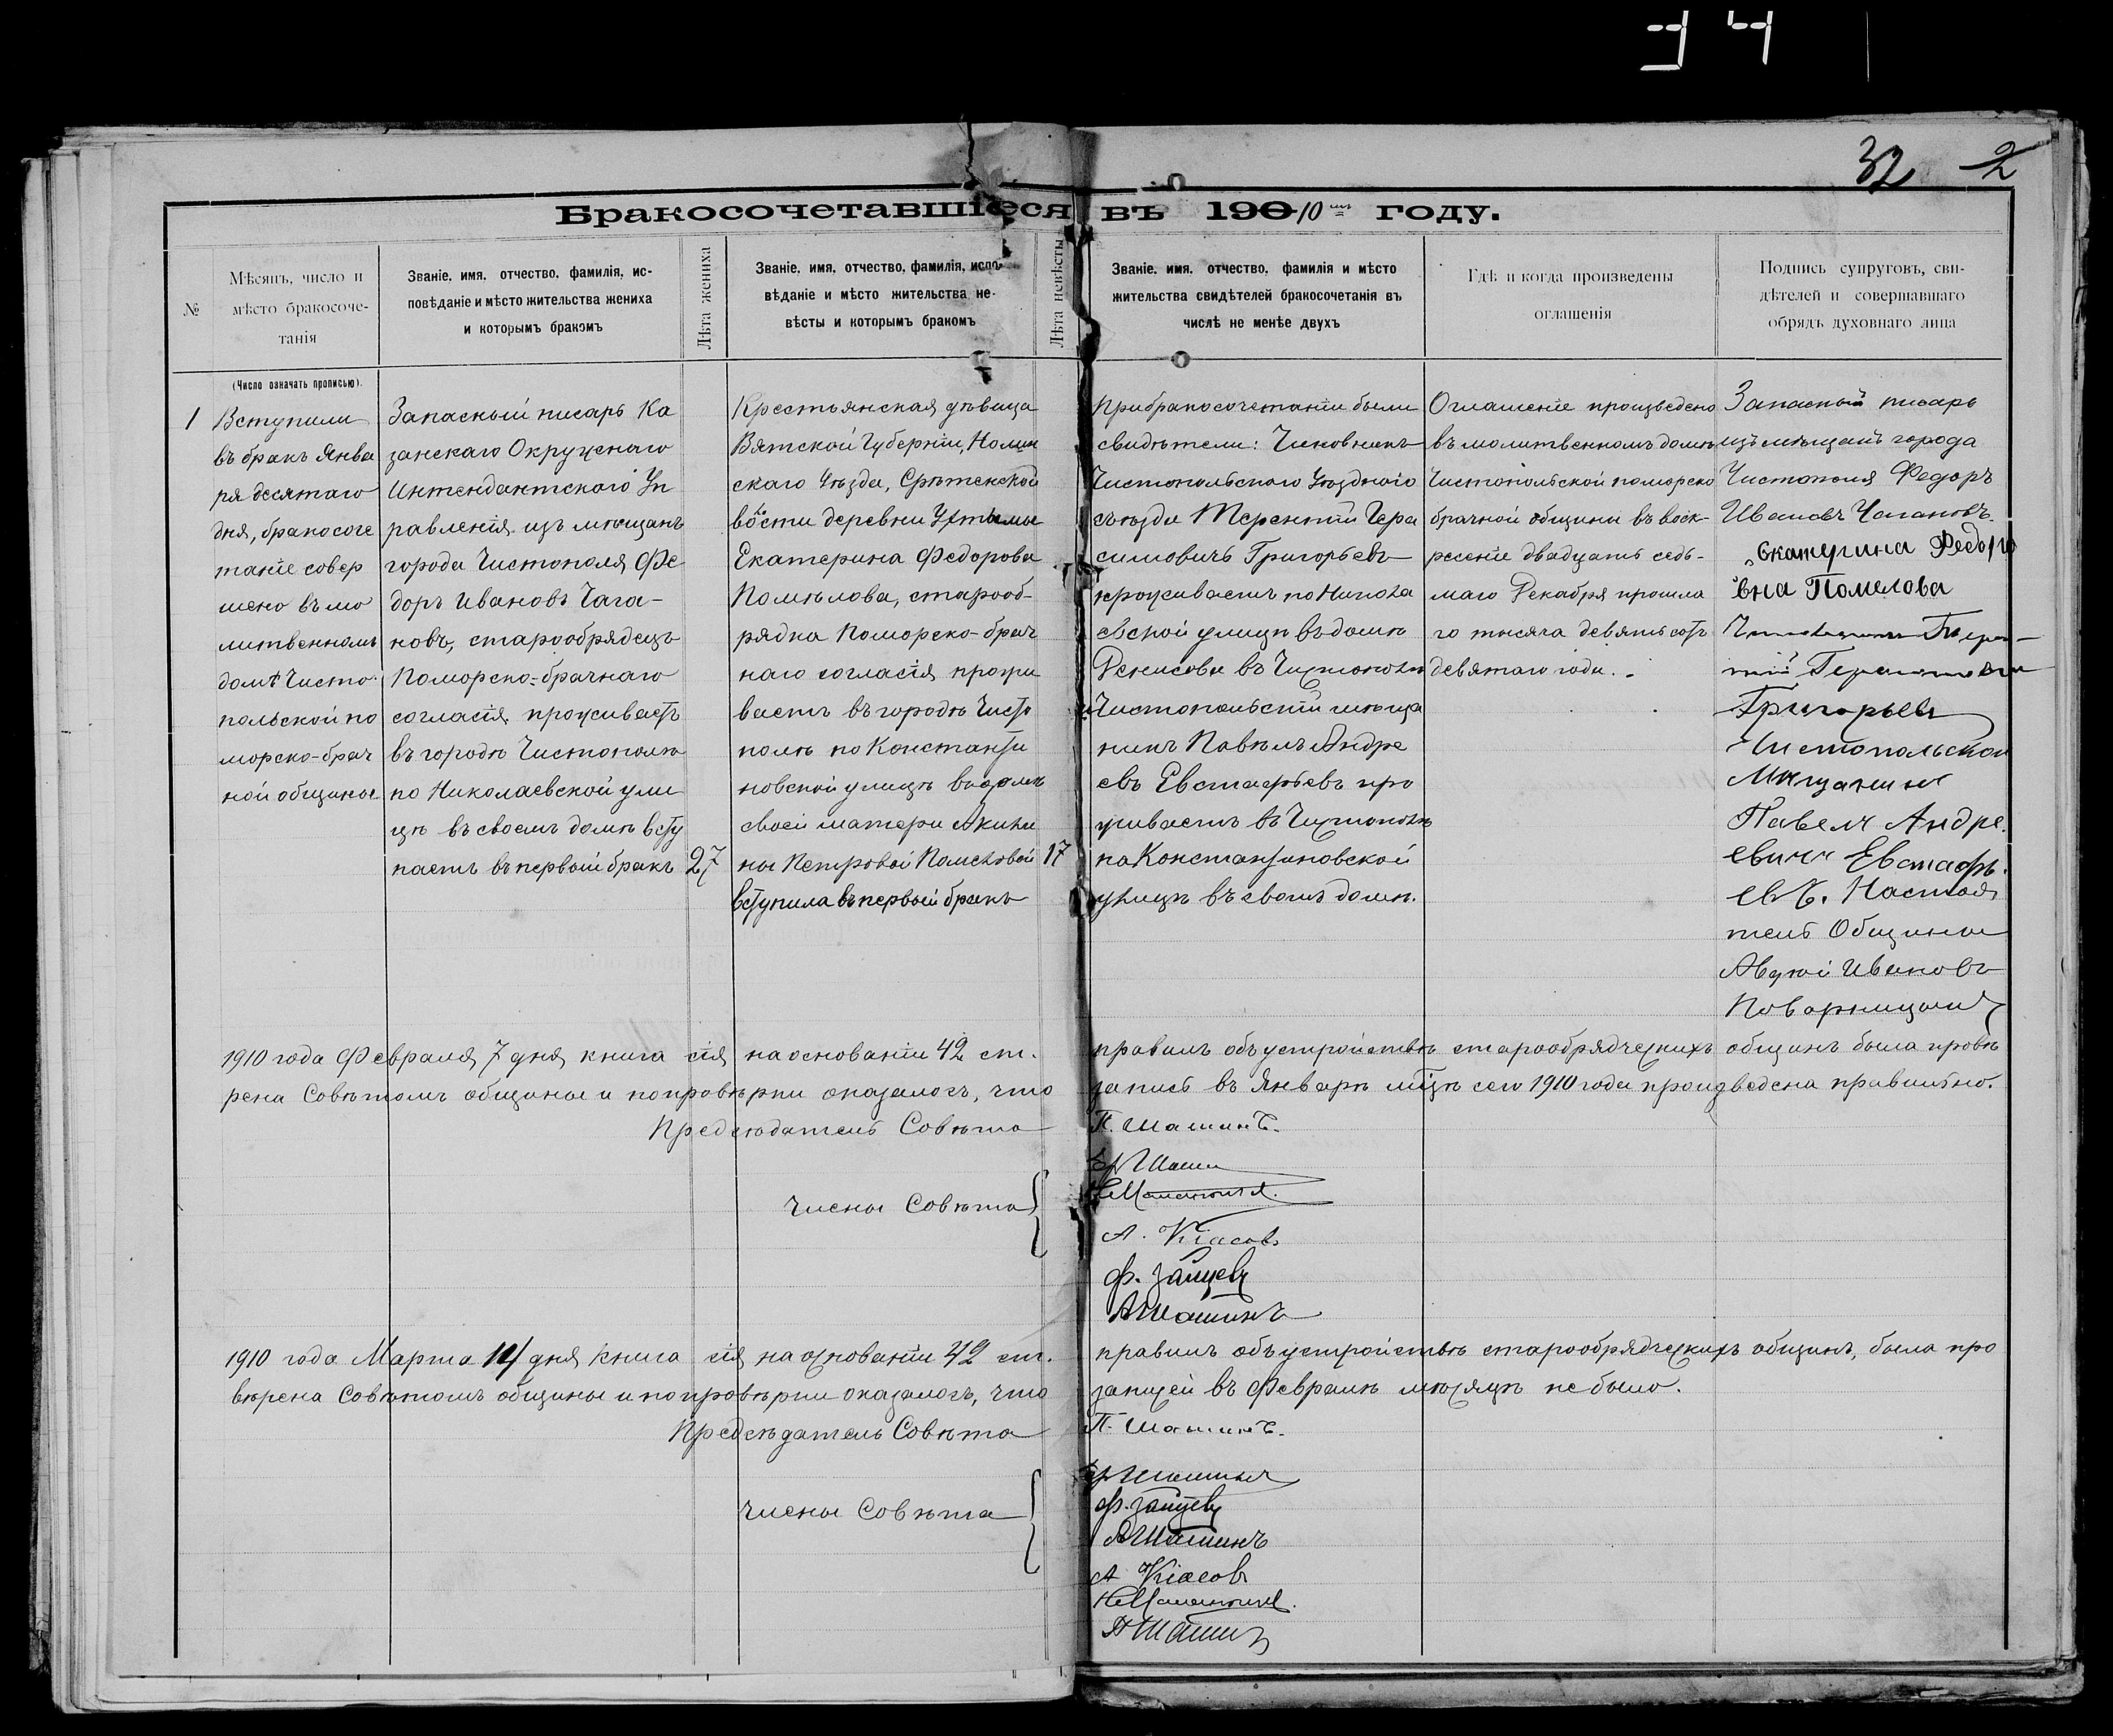 32 2
Бракосочетавшіеся въ 1910 году.
№
Мѣсяцъ, число и
мѣсто бракосоче-
танія
Званіе, имя, отчество, фамилія, ис-
повѣданіе и мѣсто жительства жениха
и которымъ бракомъ
Лѣта жениха
Званіе, имя, отчество, фамилія, испо-
вѣданіе и мѣсто жительства не-
вѣсты и которымъ бракомъ
Лѣта невѣсты
Званіе, имя, отчество, фамилія и мѣсто
жительства свидѣтелей бракосочетанія въ
числѣ не менѣе двухъ
Гдѣ и когда произведены
оглашенія
Подпись супруговъ, сви-
дѣтелей и совершавшаго
обрядъ духовнаго лица
(Число означать прописью).
1
Вступили
въ бракъ Янва
ря десятаго
дня, бракосоче
таніе совер
шено въ мо
литвенномъ
домѣ Чисто-
польской по
морско-брач
ной общины
Запасный писарь Ка
занскаго Окружнаго
Интендантскаго Уп
равленія изъ мѣщанъ
города Чистополя Фе
доръ Ивановъ Чага-
новъ, старообрядецъ
Поморско-брачнаго
согласія проживаетъ
въ городѣ Чистополѣ
по Николаевской ули
цѣ въ своемъ домѣ всту
паетъ въ первый бракъ
27
Крестьянская дѣвица
Вятской Губерніи, Нолин
скаго Уѣзда, Срѣтенской
вости деревни
Екатерина Федорова
Помѣлова, старооб-
рядка Поморско-брач
наго согласія прожи
ваетъ въ городѣ Чисто
полѣ по Константи
новской улицѣ въ домѣ
своей матери Акили
ны Петровой Помѣловой
вступила въ первый бракъ
17
При бракосочетаніи были
свидѣтели: Чиновникъ
Чистопольскаго Уѣзднаго
съѣзда Терентій Гера
симовичъ Григорьевъ
проживаетъ по Никола
евской улицѣ въ домѣ
Денисова въ Чистополѣ
Чистопольскій мѣща
нинъ Павелъ Андре
евъ Евстафьевъ про
живаетъ въ Чистополѣ
по Константиновской
улицѣ въ своемъ домѣ.
Оглашеніе произведено
въ молитвенномъ домѣ
Чистопольской поморско
брачной общины въ воск-
ресеніе двадцать седь-
маго Декабря прошла
го тысяча девятьсотъ
девятаго года.
Запасный писарь
изъ мѣщанъ города
Чистополя Федоръ
Ивановъ Чагановъ.
Екатерина Федоро
вна Помелова
Чиновникъ Терен-
тій Герасимовичъ
Григорьевъ
Чистопольской
Мищанин
Павелъ Андре.
евичъ Евстафь.
евъ. Настоя
тель Общины
Авдей Ивановъ
Поварницынъ
1910 года Февраля 7 дня книга сія на основаніи 42 ст. правилъ объ устройствѣ старообрядческихъ общинъ была провѣ
рена Совѣтомъ общины и по провѣркѣ оказалось, что запись въ Январѣ мѣцѣ сего 1910 года произведена правильно.
Предсѣдатель Совѣта П. Шашинъ.
Члены Совѣта
А. Власовъ
Ф. Зайцевъ
А Шашинъ
1910 года Марта 14 дня книга сія на основаніи 42 ст. правилъ объ устройствѣ старообрядческихъ общинъ, была про
вѣрена Совѣтомъ общины и по провѣркѣ оказалось, что записей въ Февралѣ мѣсяцѣ не было.
Предсѣдатель Совѣта П. Шашинъ.
Члены Совѣта
Ф. Зайцевъ
А Шашинъ
А Власовъ